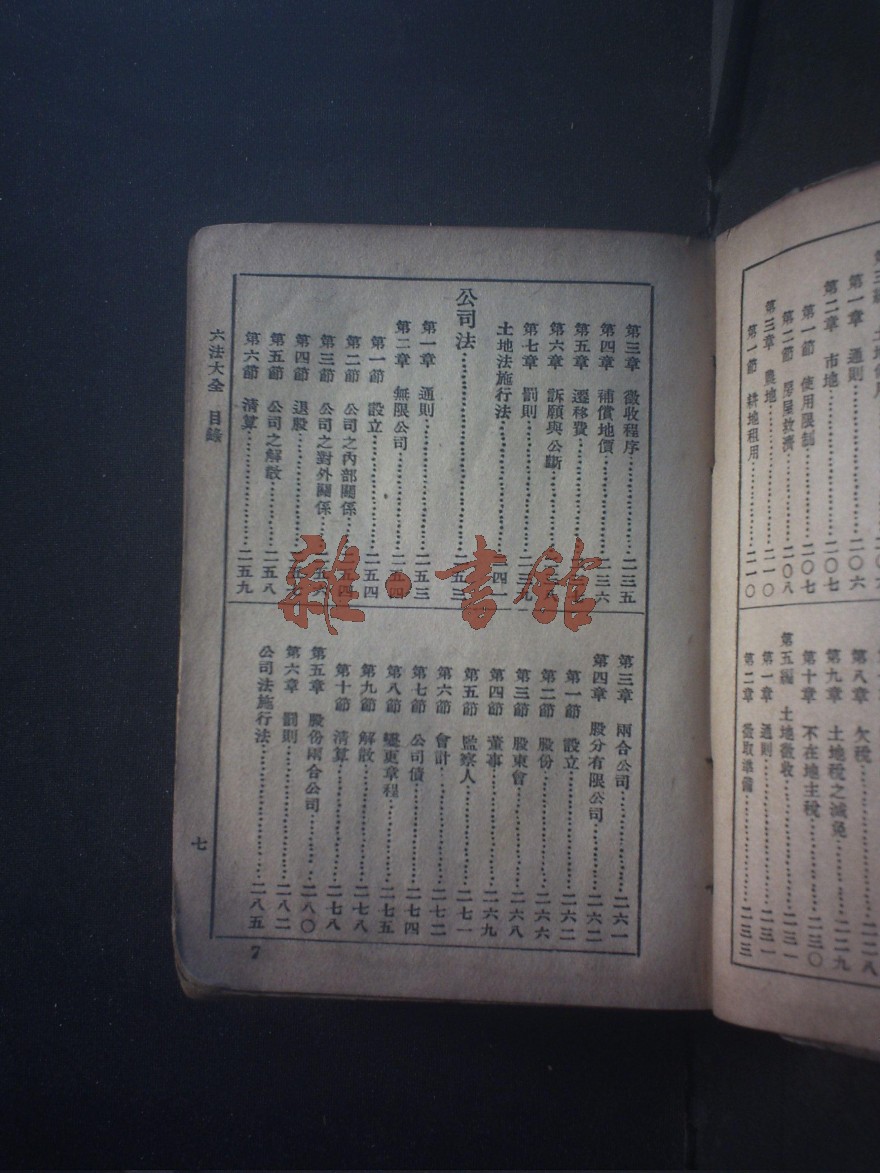 第三編 土地使用
第一章 通則……二〇六
第二章 市地……二〇七
第一節 使用限制……二〇七
第二節 房屋救濟……二〇八
第三章 農地……二一〇
第一節 耕地租用……二一〇
第八章 欠稅……二二八
第九章 土地稅之減免……二二九
第十章 不在地主稅……二三〇
第五編 土地徵收……二三一
第一章 通則……二三一
第二章 徵收準備……二三三
第三章 徵收程序……二三五
第四章 補償地價……二三六
第五章 遷移費……
第六章 訴願與公斷……
第七章 罰則……二三九
土地法施行法……二四一
公司法……二五三
第一章 通則……二五三
第二章 無限公司……二五四
第一節 設立……二五四
第二節 公司之內部關係……二五四
第三節 公司之對外關係……二五六
第四節 退股……二五七
第五節 公司之解散……二五八
第六節 清算……二五九
第三章 兩合公司……二六一
第四章 股分有限公司……二六二
第一節 設立……二六二
第二節 股份……二六六
第三節 股東會……二六八
第四節 董事……二六九
第五節 監察人……二七一
第六節 會計……二七二
第七節 公司債……二七四
第八節 變更章程……二七五
第九節 解散……二七八
第十節 清算……二七八
第五章 股份兩合公司……二八〇
第六章 罰則……二八二
公司法施行法……二八五
六法大全 目錄
七
7
雜·書館